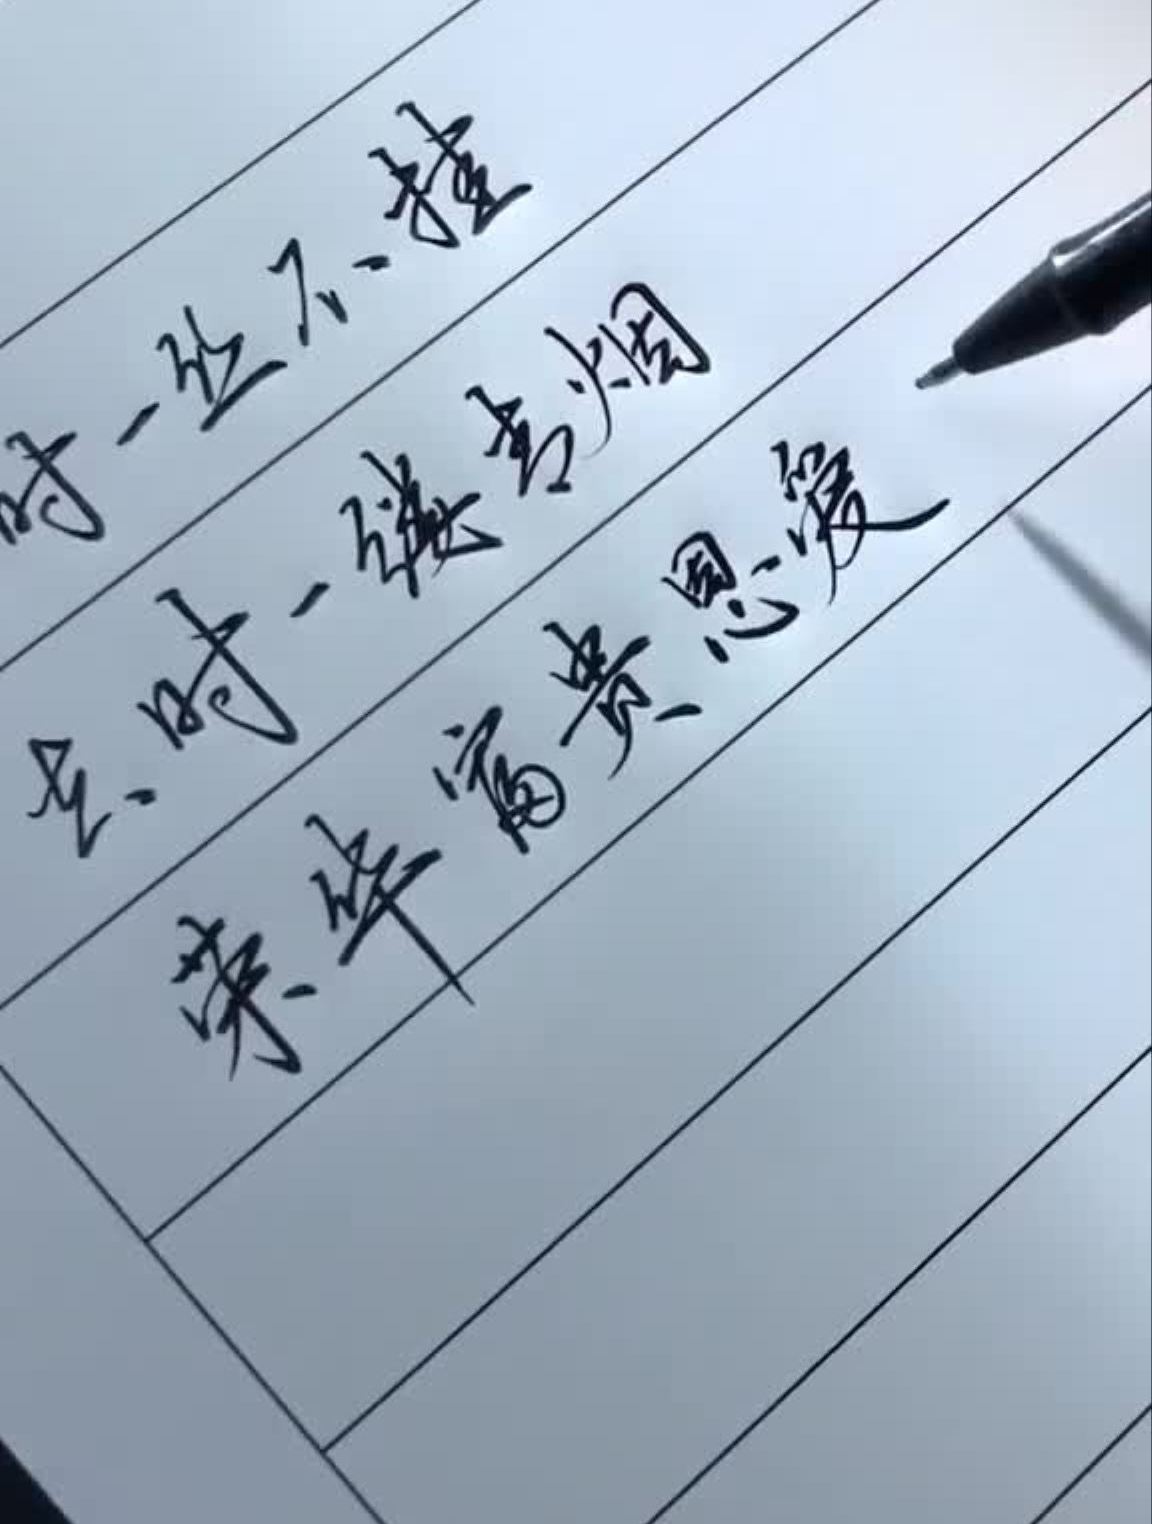 时一丝不挂
去时一缕青烟
荣华富贵恩爱